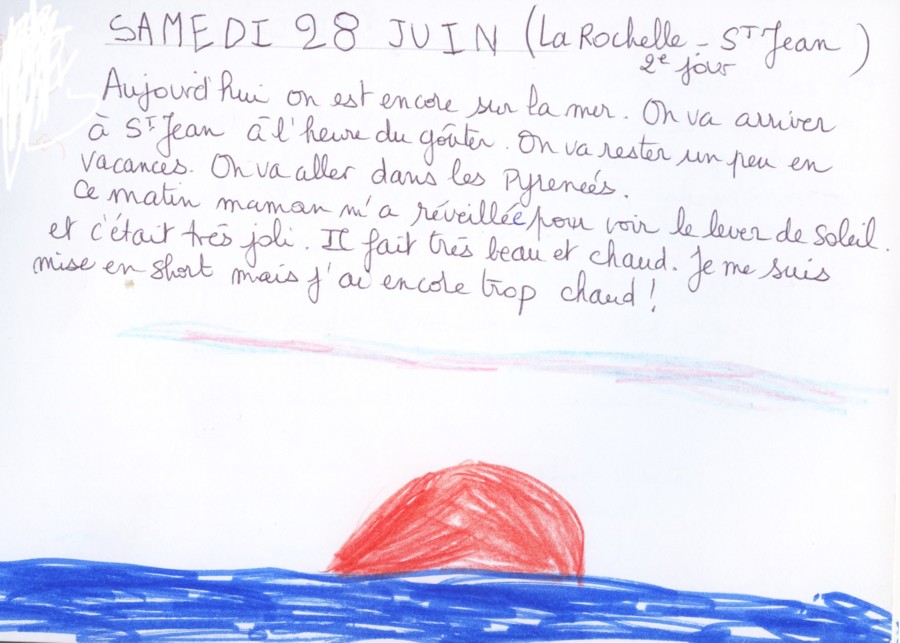 SAMEDI 28 JUIN (La Rochelle - Sᵀ Jean )
2ᵉ jour
Aujourd'hui on est encore sur la mer. On va arriver
à Sᵀ Jean à l'heure du goûter. On va rester un peu en
vacances. On va aller dans les Pyreneés.
Ce matin maman m'a réveillée pour voir le lever de soleil.
et c'était très joli. Il fait très beau et chaud. Je me suis
mise en short mais j'ai encore trop chaud !